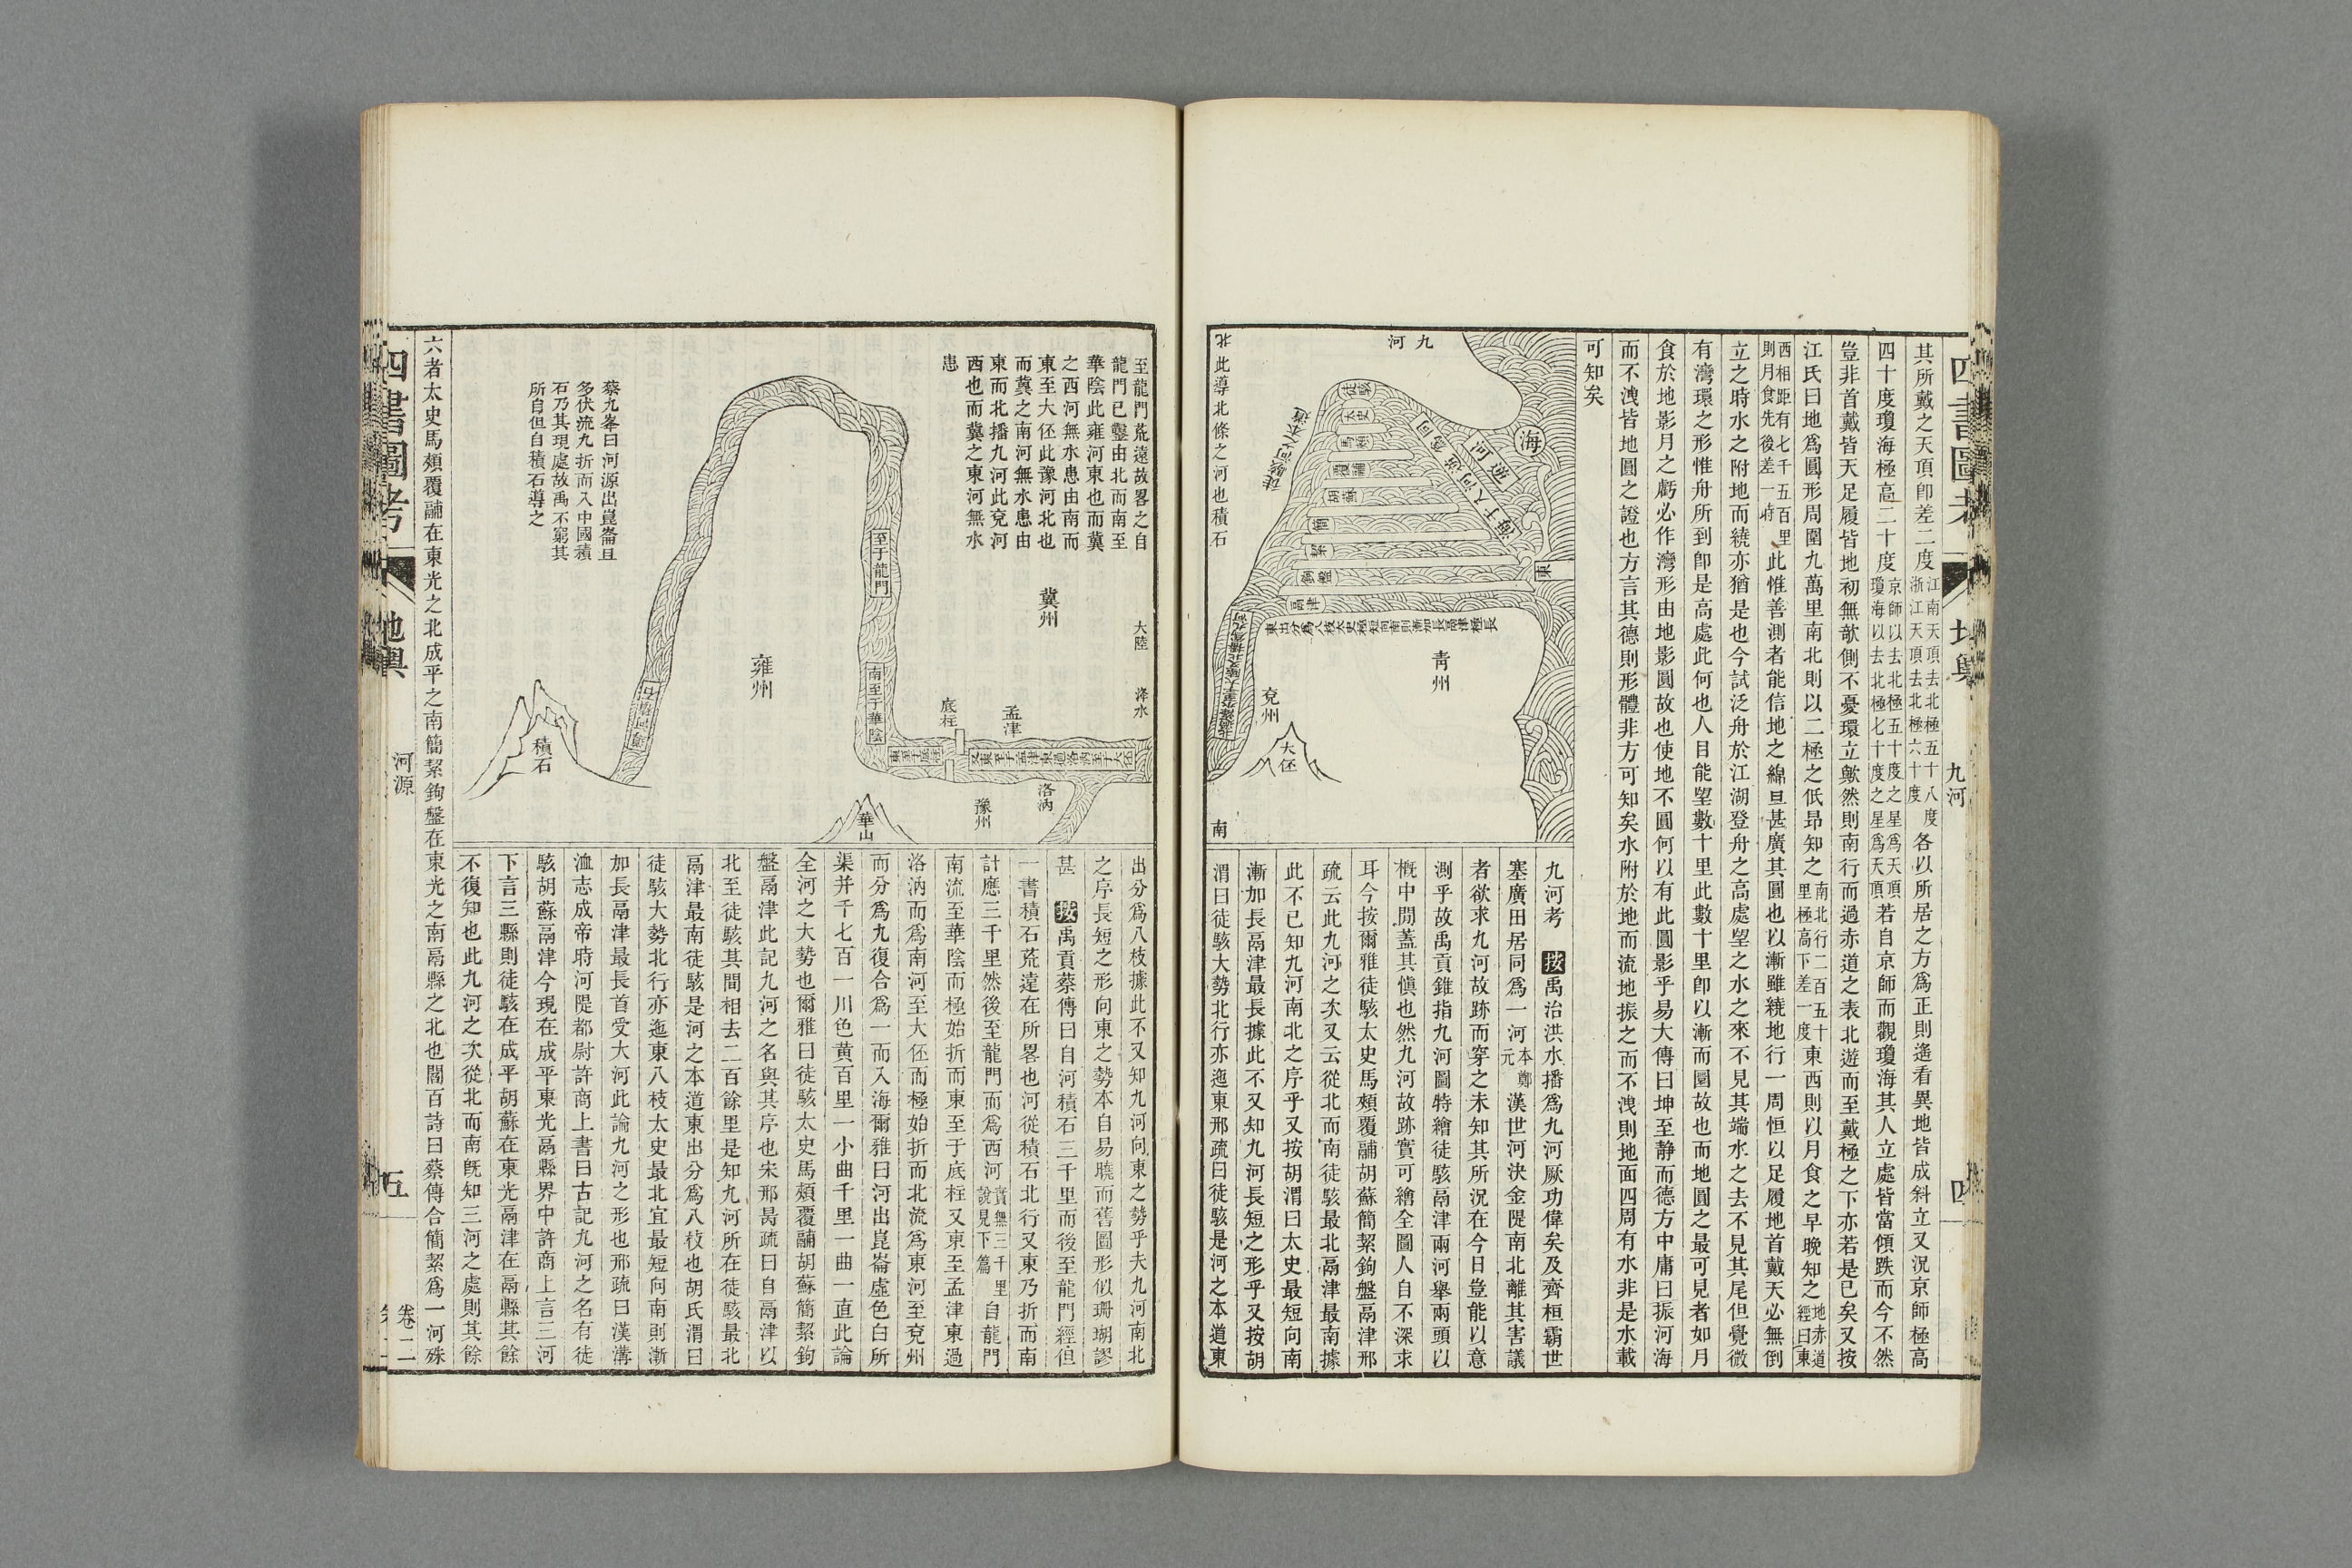 四書圖考
地輿
九河
四
其所戴之天頂卽差二度江南天頂去北極五十八度浙江天頂去北極六十度各以所居之方爲正則遙看異地皆成斜立又況京師極高
四十度瓊海極高二十度京師以去北極五十度之星爲天頂瓊海以去北極七十度之星爲天頂若自京師而觀瓊海其人立處皆當傾跌而今不然
豈非首戴皆天足履皆地初無欹側不憂環立歟然則南行而過赤道之表北遊而至戴極之下亦若是已矣又按
江氏曰地爲圓形周圍九萬里南北則以二極之低昂知之南北行二百五十里極高下差一度東西則以月食之早晚知之地赤道經曰東
西相距有七千五百里則月食先後差一時此惟善測者能信地之綿亘甚廣其圓也以漸雖繞地行一周恒以足履地首戴天必無倒
立之時水之附地而繞亦猶是也今試泛舟於江湖登舟之高處望之水之來不見其端水之去不見其尾但覺微
有灣環之形惟舟所到卽是高處此何也人目能望數十里此數十里卽以漸而圓故也而地圓之最可見者如月
食於地影月之虧必作灣形由地影圓故也使地不圓何以有此圓影乎易大傳曰坤至靜而德方中庸曰振河海
而不洩皆地圓之證也方言其德則形體非方可知矣水附於地而流地振之而不洩則地面四周有水非是水載
可知矣
九河
海
東
北
南
徒駭
太史
馬頰
覆鬴
胡蘇
簡
絜
鉤盤
鬲津
同爲逆河入于海
東出分爲八枝太史極短向南則漸加長鬲津極長
青州
兗州
大伾
此導北條之河也積石
九河考 按禹治洪水播爲九河厥功偉矣及齊桓霸世
塞廣田居同爲一河本鄭元漢世河決金隄南北離其害議
者欲求九河故跡而穿之未知其所況在今日豈能以意
測乎故禹貢錐指九河圖特繪徒駭鬲津兩河舉兩頭以
槪中間蓋其愼也然九河故跡實可繪全圖人自不深求
耳今按爾雅徒駭太史馬頰覆鬴胡蘇簡絜鉤盤鬲津邢
疏云此九河之次又云從北而南徒駭最北鬲津最南據
此不已知九河南北之序乎又按胡渭曰太史最短向南
漸加長鬲津最長據此不又知九河長短之形乎又按胡
渭曰徒駭大勢北行亦迤東邢疏曰徒駭是河之本道東
至龍門荒遠故畧之自
龍門已鑿由北而南至
華陰此雍河東也而冀
之西河無水患由南而
東至大伾此豫河北也
而冀之南河無水患由
東而北播九河此兗河
西也而冀之東河無水
患
大陸
洚水
冀州
孟津
底柱
洛汭
豫州
至于龍門
南至于華陰
東至于底柱
又東至于孟津東過洛汭至于大伾
雍州
華山
積石
蔡九峯曰河源出崑崙且
多伏流九折而入中國積
石乃其現處故禹不窮其
所自但自積石導之
出分爲八枝據此不又知九河向東之勢乎夫九河南北
之序長短之形向東之勢本自易曉而舊圖形似珊瑚謬
甚 按禹貢蔡傳曰自河積石三千里而後至龍門經但
一書積石荒遠在所畧也河從積石北行又東乃折而南
計應三千里然後至龍門而爲西河實無三千里說見下篇自龍門
南流至華陰而極始折而東至于底柱又東至孟津東過
洛汭而爲南河至大伾而極始折而北流爲東河至兗州
而分爲九復合爲一而入海爾雅曰河出崑崙虛色白所
渠并千七百一川色黃百里一小曲千里一曲一直此論
全河之大勢也爾雅曰徒駭太史馬頰覆鬴胡蘇簡絜鉤
盤鬲津此記九河之名與其序也宋邢昺疏曰自鬲津以
北至徒駭其間相去二百餘里是知九河所在徒駭最北
鬲津最南徒駭是河之本道東出分爲八枝也胡氏渭曰
徒駭大勢北行亦迤東八枝太史最北宜最短向南則漸
加長鬲津最長首受大河此論九河之形也邢疏曰漢溝
洫志成帝時河隄都尉許商上書曰古記九河之名有徒
駭胡蘇鬲津今現在成平東光鬲縣界中許商上言三河
下言三縣則徒駭在成平胡蘇在東光鬲津在鬲縣其餘
不復知也此九河之次從北而南旣知三河之處則其餘
六者太史馬頰覆鬴在東光之北成平之南簡絜鉤盤在東光之南鬲縣之北也閻百詩曰蔡傳合簡絜爲一河殊
四書圖考
地輿
河源
五
卷二